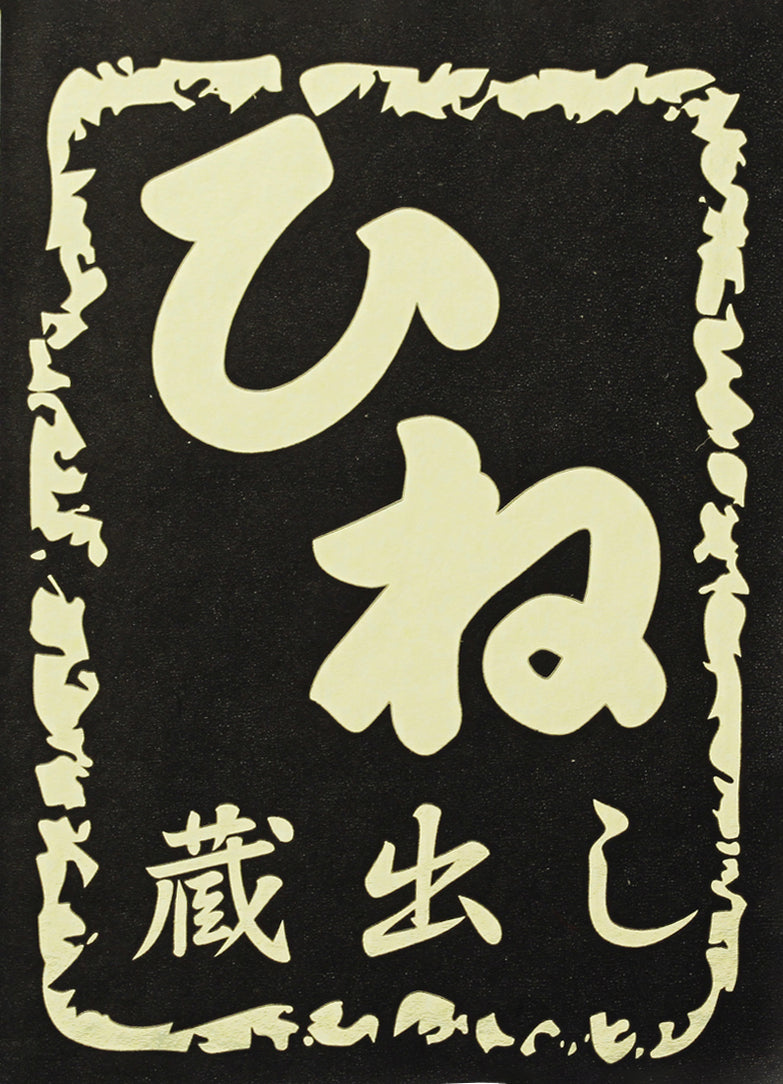 ひね
蔵出し